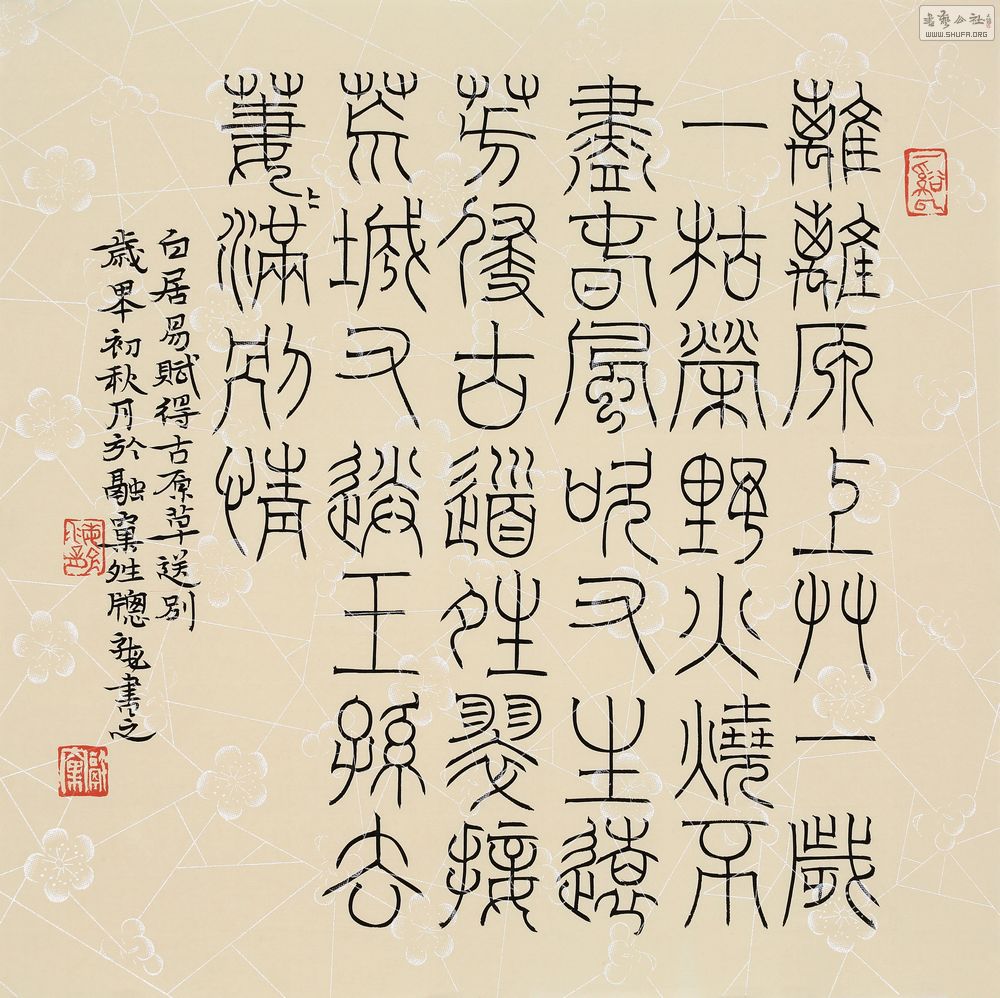 離離原上艸一歲
一枯榮野火燒不
盡春風吹又生遠
芳侵古道夝翠接
荒城又送王孫去
萋〻滿別情
白居易賦得古原草送別
歲初秋月於融窠夝牕書之
書藝公社
WWW.SHUFA.ORG